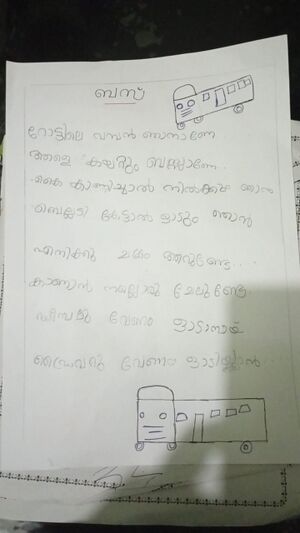 ബസ്
റോട്ടിലെ വമ്പൻ ഞാനാണേ..
ആളെ കയറ്റും ബസ്സാണേ..
കൈ കാണിച്ചാൽ നിൽക്കും ഞാൻ
ബെല്ലടി കേട്ടാൽ ഓടും ഞാൻ
എനിക്കു ചക്രം ആറുണ്ടേ....
കാണാൻ നല്ലൊരു ചേലുണ്ടേ
ഡീസൽ വേണം ഓടാനായ്
ഡ്രൈവറു വേണം ഓടിയ്ക്കാൻ...